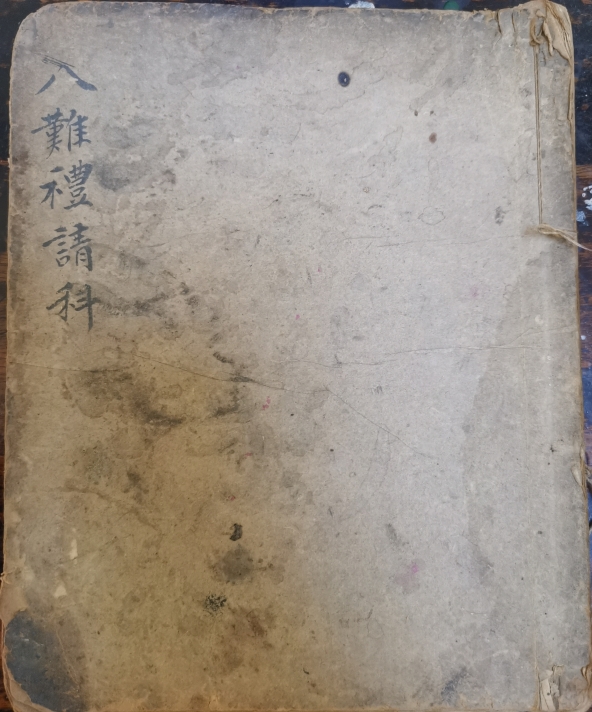 八難禮請科